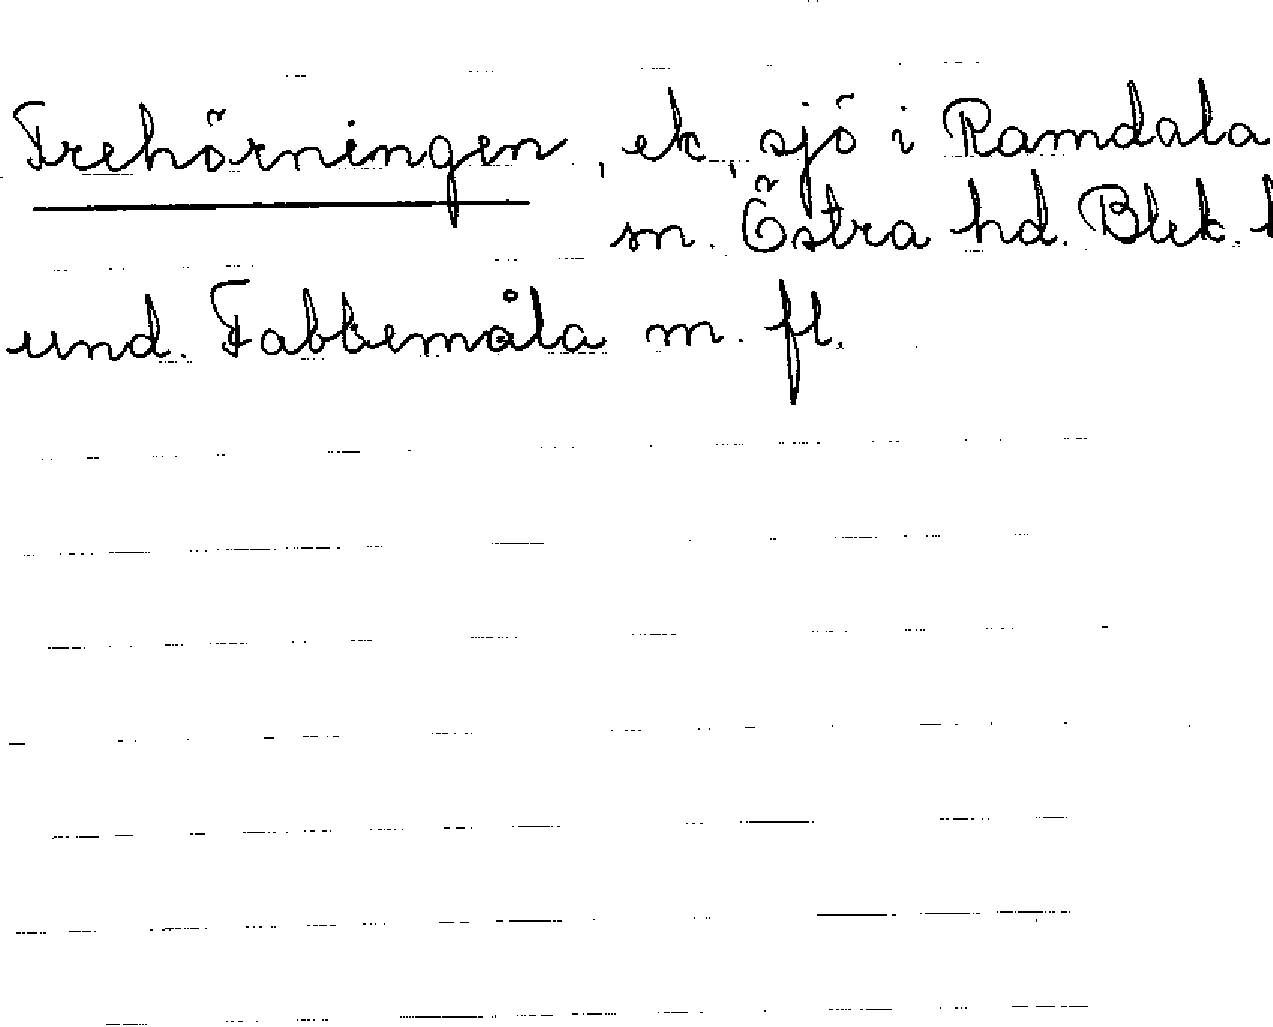 Trehörningen, ek, sjö i Ramdala
sn. Östra hd. Blek. l
und. Fabbemåla m. fl.